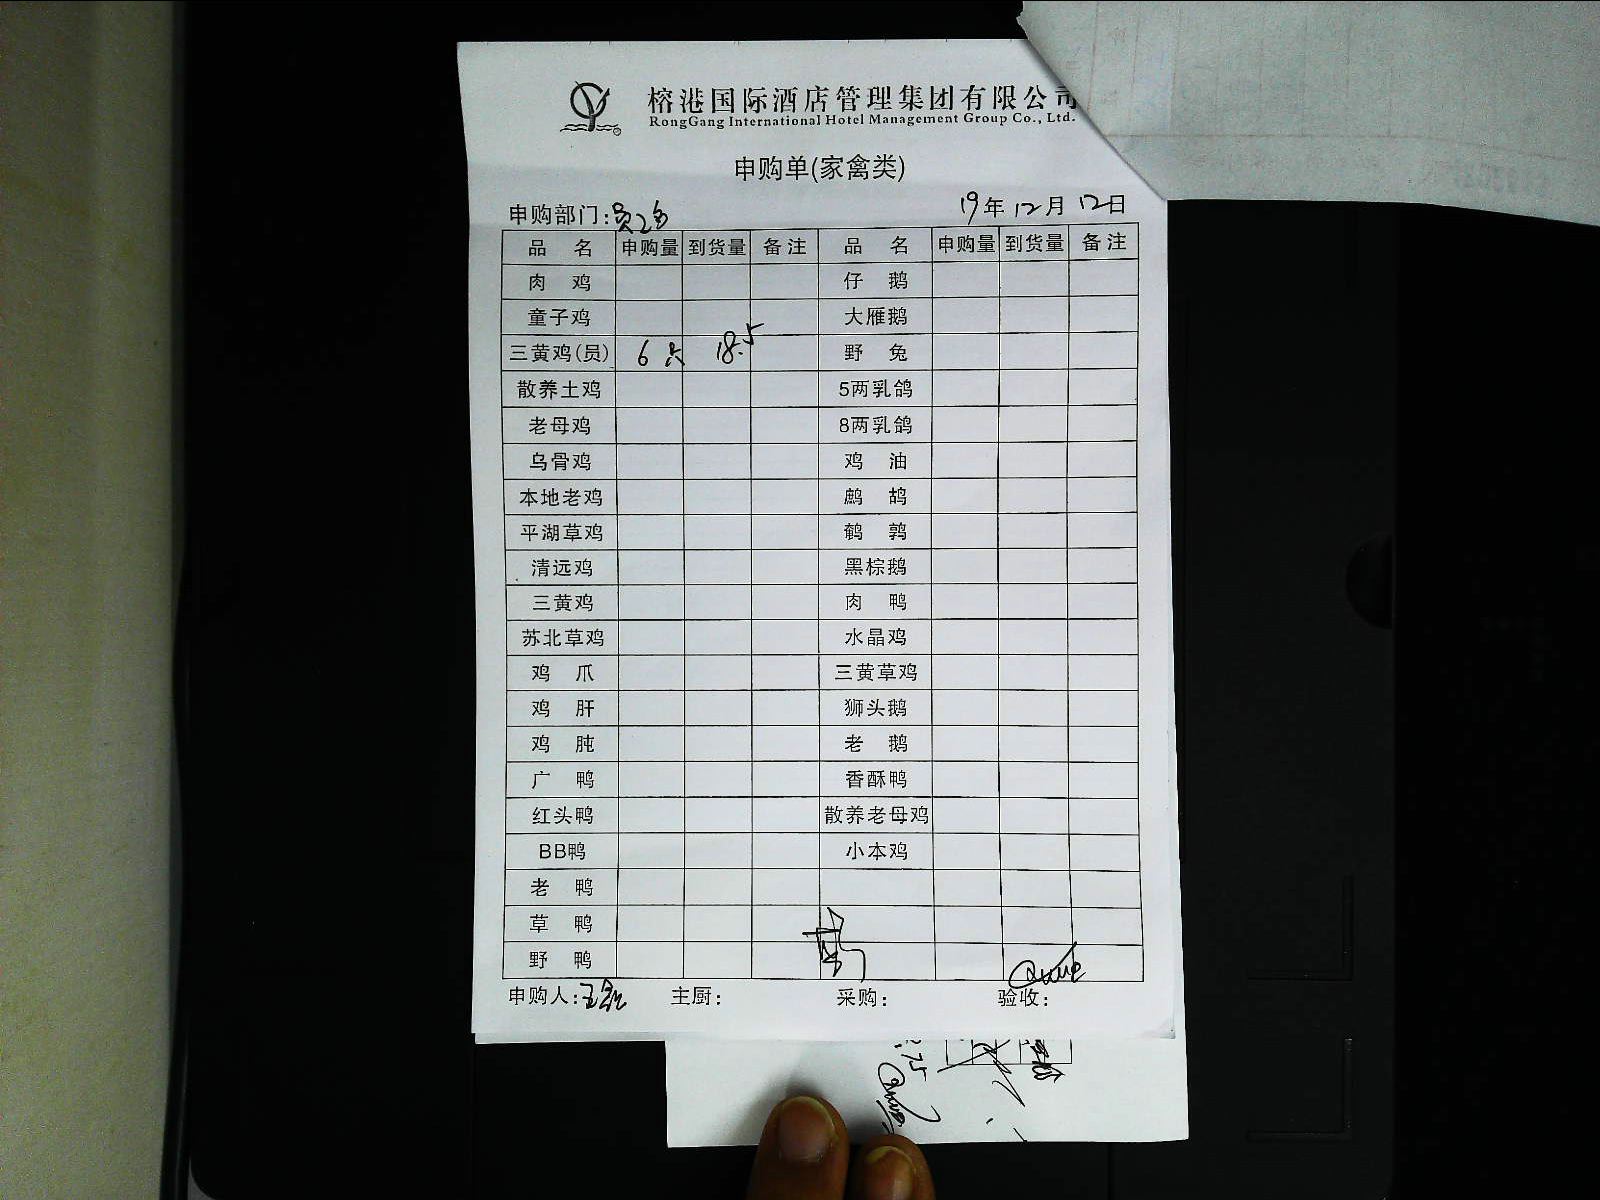 榕港国际酒店管理集团有限公司
RongGang International Hotel Management Group Co., Ltd.
申购单(家禽类)
申购部门: 19年12月12日
品 名 申购量 到货量 备注 品 名 申购量 到货量 备注
肉 鸡 仔 鹅
童子鸡 大雁鹅
三黄鸡(员) 6只 18.5 野 兔
散养土鸡 5两乳鸽
老母鸡 8两乳鸽
乌骨鸡 鸡 油
本地老鸡 鹧 鸪
平湖草鸡 鹌 鹑
清远鸡 黑棕鹅
三黄鸡 肉 鸭
苏北草鸡 水晶鸡
鸡 爪 三黄草鸡
鸡 肝 狮头鹅
鸡 肫 老 鹅
广 鸭 香酥鸭
红头鸭 散养老母鸡
BB鸭 小本鸡
老 鸭
草 鸭
野 鸭
申购人: 主厨: 采购: 验收: